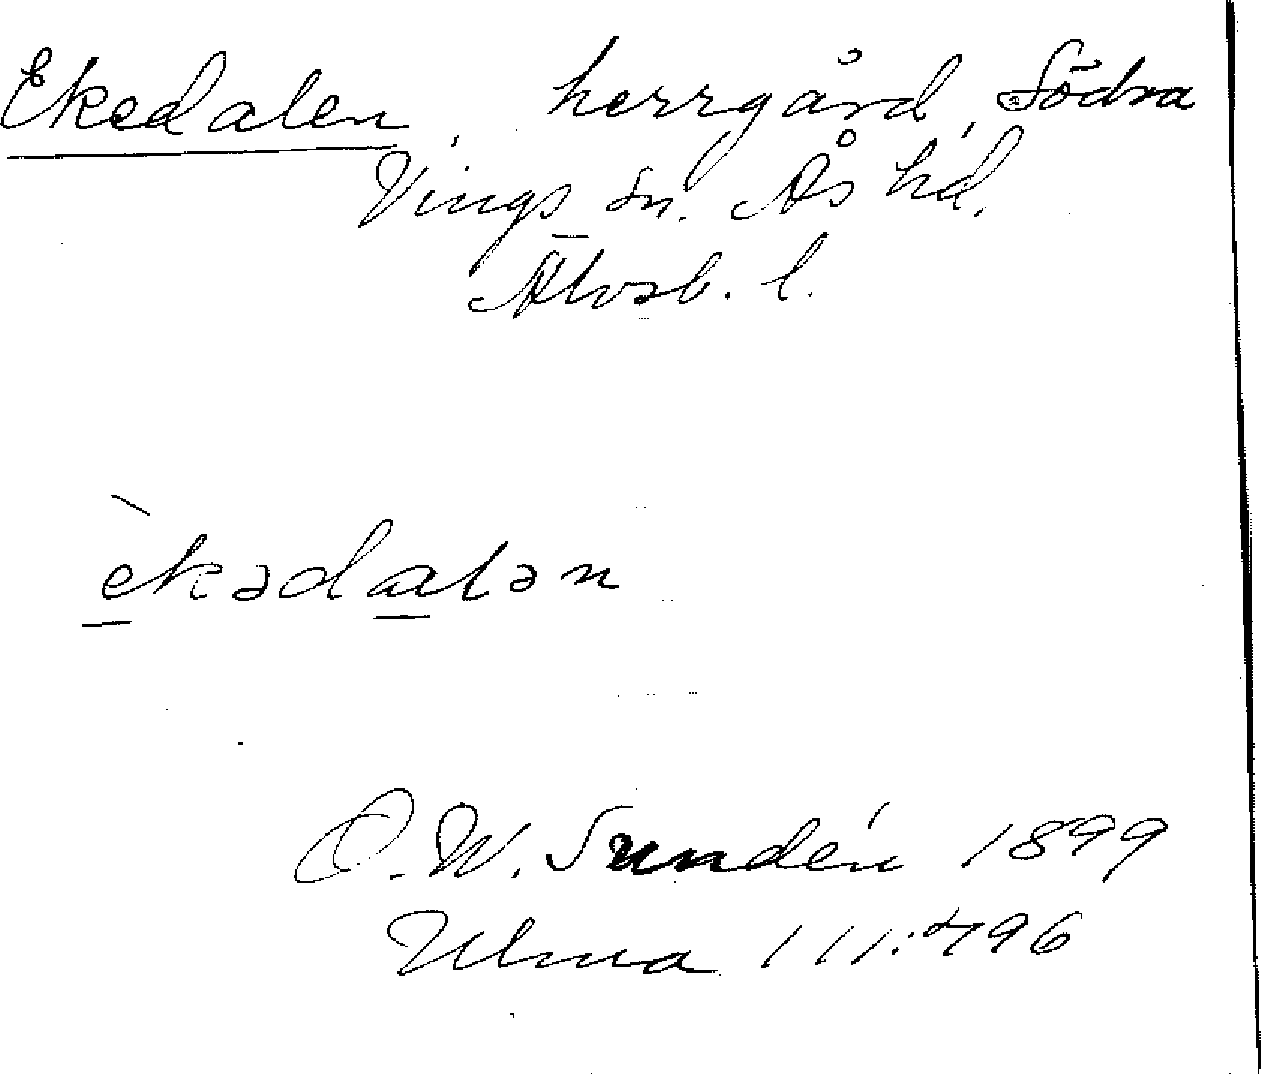 Ekedalen, herrgård, Södra
Vings sn. Ås hd.
Älvsb. l.
èkədalən
O. W. Sundén 1899
Ulma 111:496